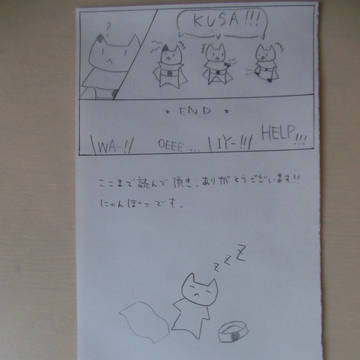 ?
KUSA!!!
・END・
WA-!! OEEE.... IY-!!! HELP!!!
ここまで読んで頂き、ありがとうございます!!
にゃんぽっです。
zzz